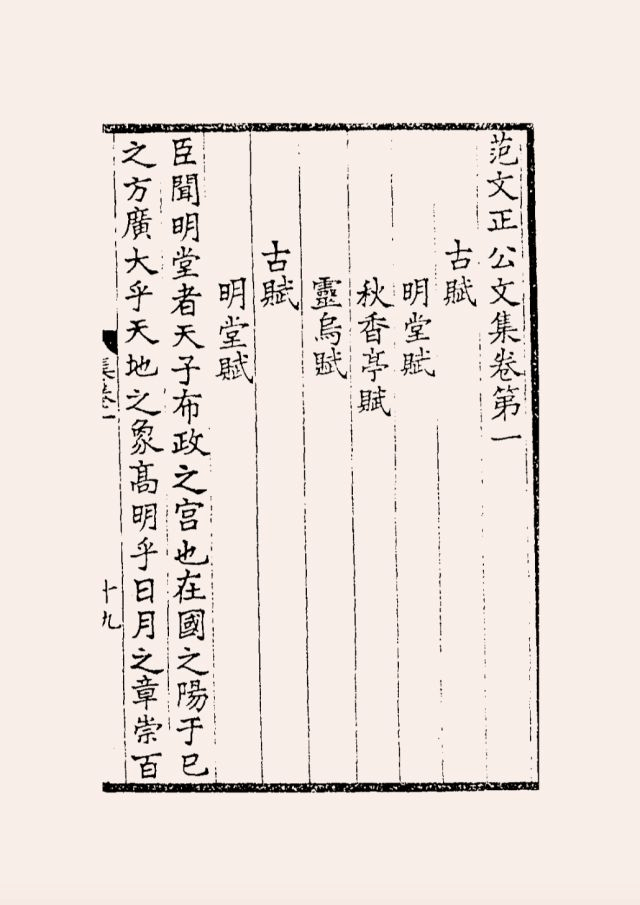 范文正公文集卷第一
古賦
明堂賦
秋香亭賦
靈烏賦
古賦
明堂賦
臣聞明堂者天子布政之宮也在國之陽于巳
之方廣大乎天地之象高明乎日月之章崇百
集卷一
十九